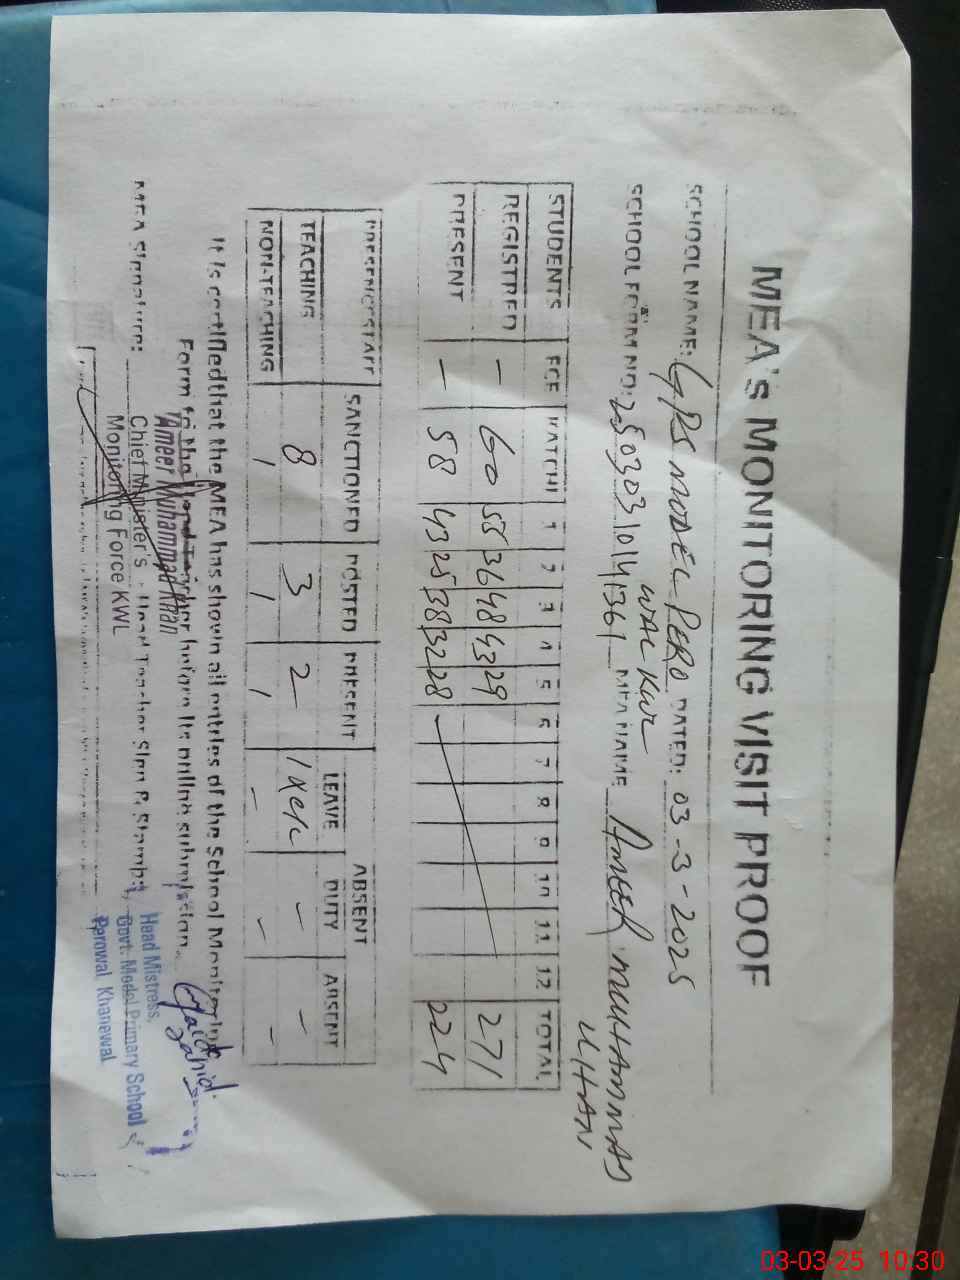 MEA's MONITORING VISIT PROOF
SCHOOL NAME: GPS MODEL PERO DATED: 03-3-2025
WAL KWL
SCHOOL FORM NO: 25030310141361 MEA NAME Ameer MUHAMMAD
KHAN
STUDENTS ECE KATCHI 1 2 3 4 5 6 7 8 9 10 11 12 TOTAL
REGISTRED - 60 55 36 48 43 29 271
PRESENT - 58 43 25 38 32 28 224
PRESNCSTAFF SANCTIONED POSTED PRESENT ABSENT
LEAVE DUTY ABSENT
TEACHING 8 3 2 1 - -
NON-TEACHING 1 1 1 - - -
It is certified that the MEA has shown all entries of the School Monitoring
Form to the Head Teacher before its online submission.
Ameer Muhammad Khan
Chief Minister's
Monitoring Force KWL
MEA Signature: Head Teacher Sign & Stamp:
Head Mistress,
Govt. Model Primary School
Perowal Khanewal
03-03-25 10:30